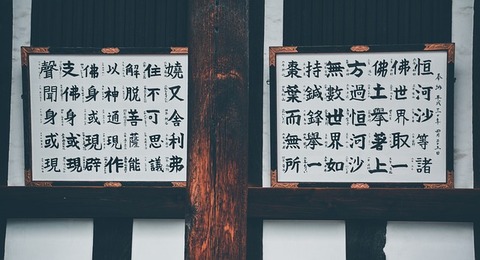 奉納
恒河沙等諸
佛世界取一
佛土擧著上
方過恒河沙
無數世界如
持鍼鋒擧一
棗葉而無所
嬈又舍利弗
住不可思議
解脫菩薩能
以神通現作
佛身或現辟
支佛身或現
聲聞身或現